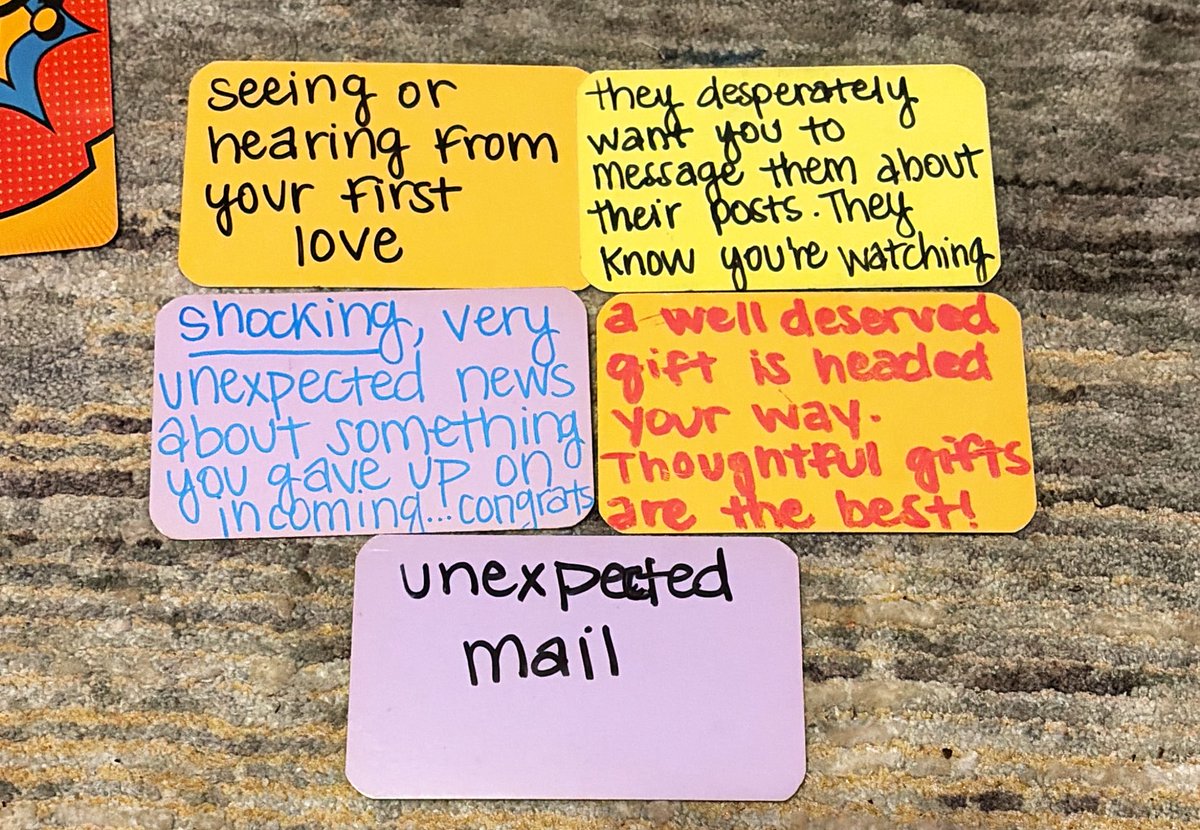 seeing or
hearing from
your first
love
they desperately
want you to
message them about
their posts. They
know you're watching
shocking, very
unexpected news
about something
you gave up on
incoming...congrats
a well deserved
gift is headed
your way.
Thoughtful gifts
are the best!
unexpected
mail